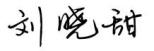 刘晓甜